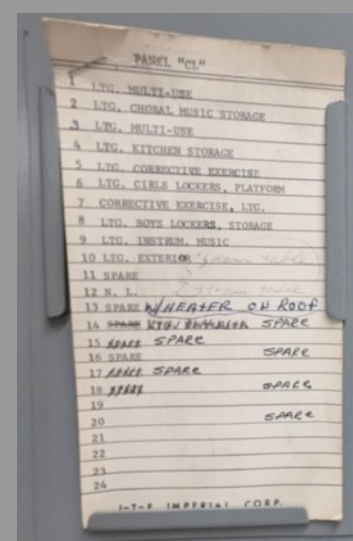 PANEL "CL"
1 LTG. MULTI-USE
2 LTG. CHORAL MUSIC STORAGE
3 LTG. MULTI-USE
4 LTG. KITCHEN STORAGE
5 LTG. CORRECTIVE EXERCISE
6 LTG. GIRLS LOCKERS, PLATFORM
7 CORRECTIVE EXERCISE, LTG.
8 LTG. BOYS LOCKERS, STORAGE
9 LTG. INSTRUM. MUSIC
10 LTG. EXTERIOR Steam table
11 SPARE
12 N. L. Steam table
13 SPARE W/HEATER ON ROOF
14 SPARE SPARE
15 SPARE
16 SPARE SPARE
17 SPARE
18 SPARE
19
20 SPARE
21
22
23
24
I-T-E IMPERIAL CORP.